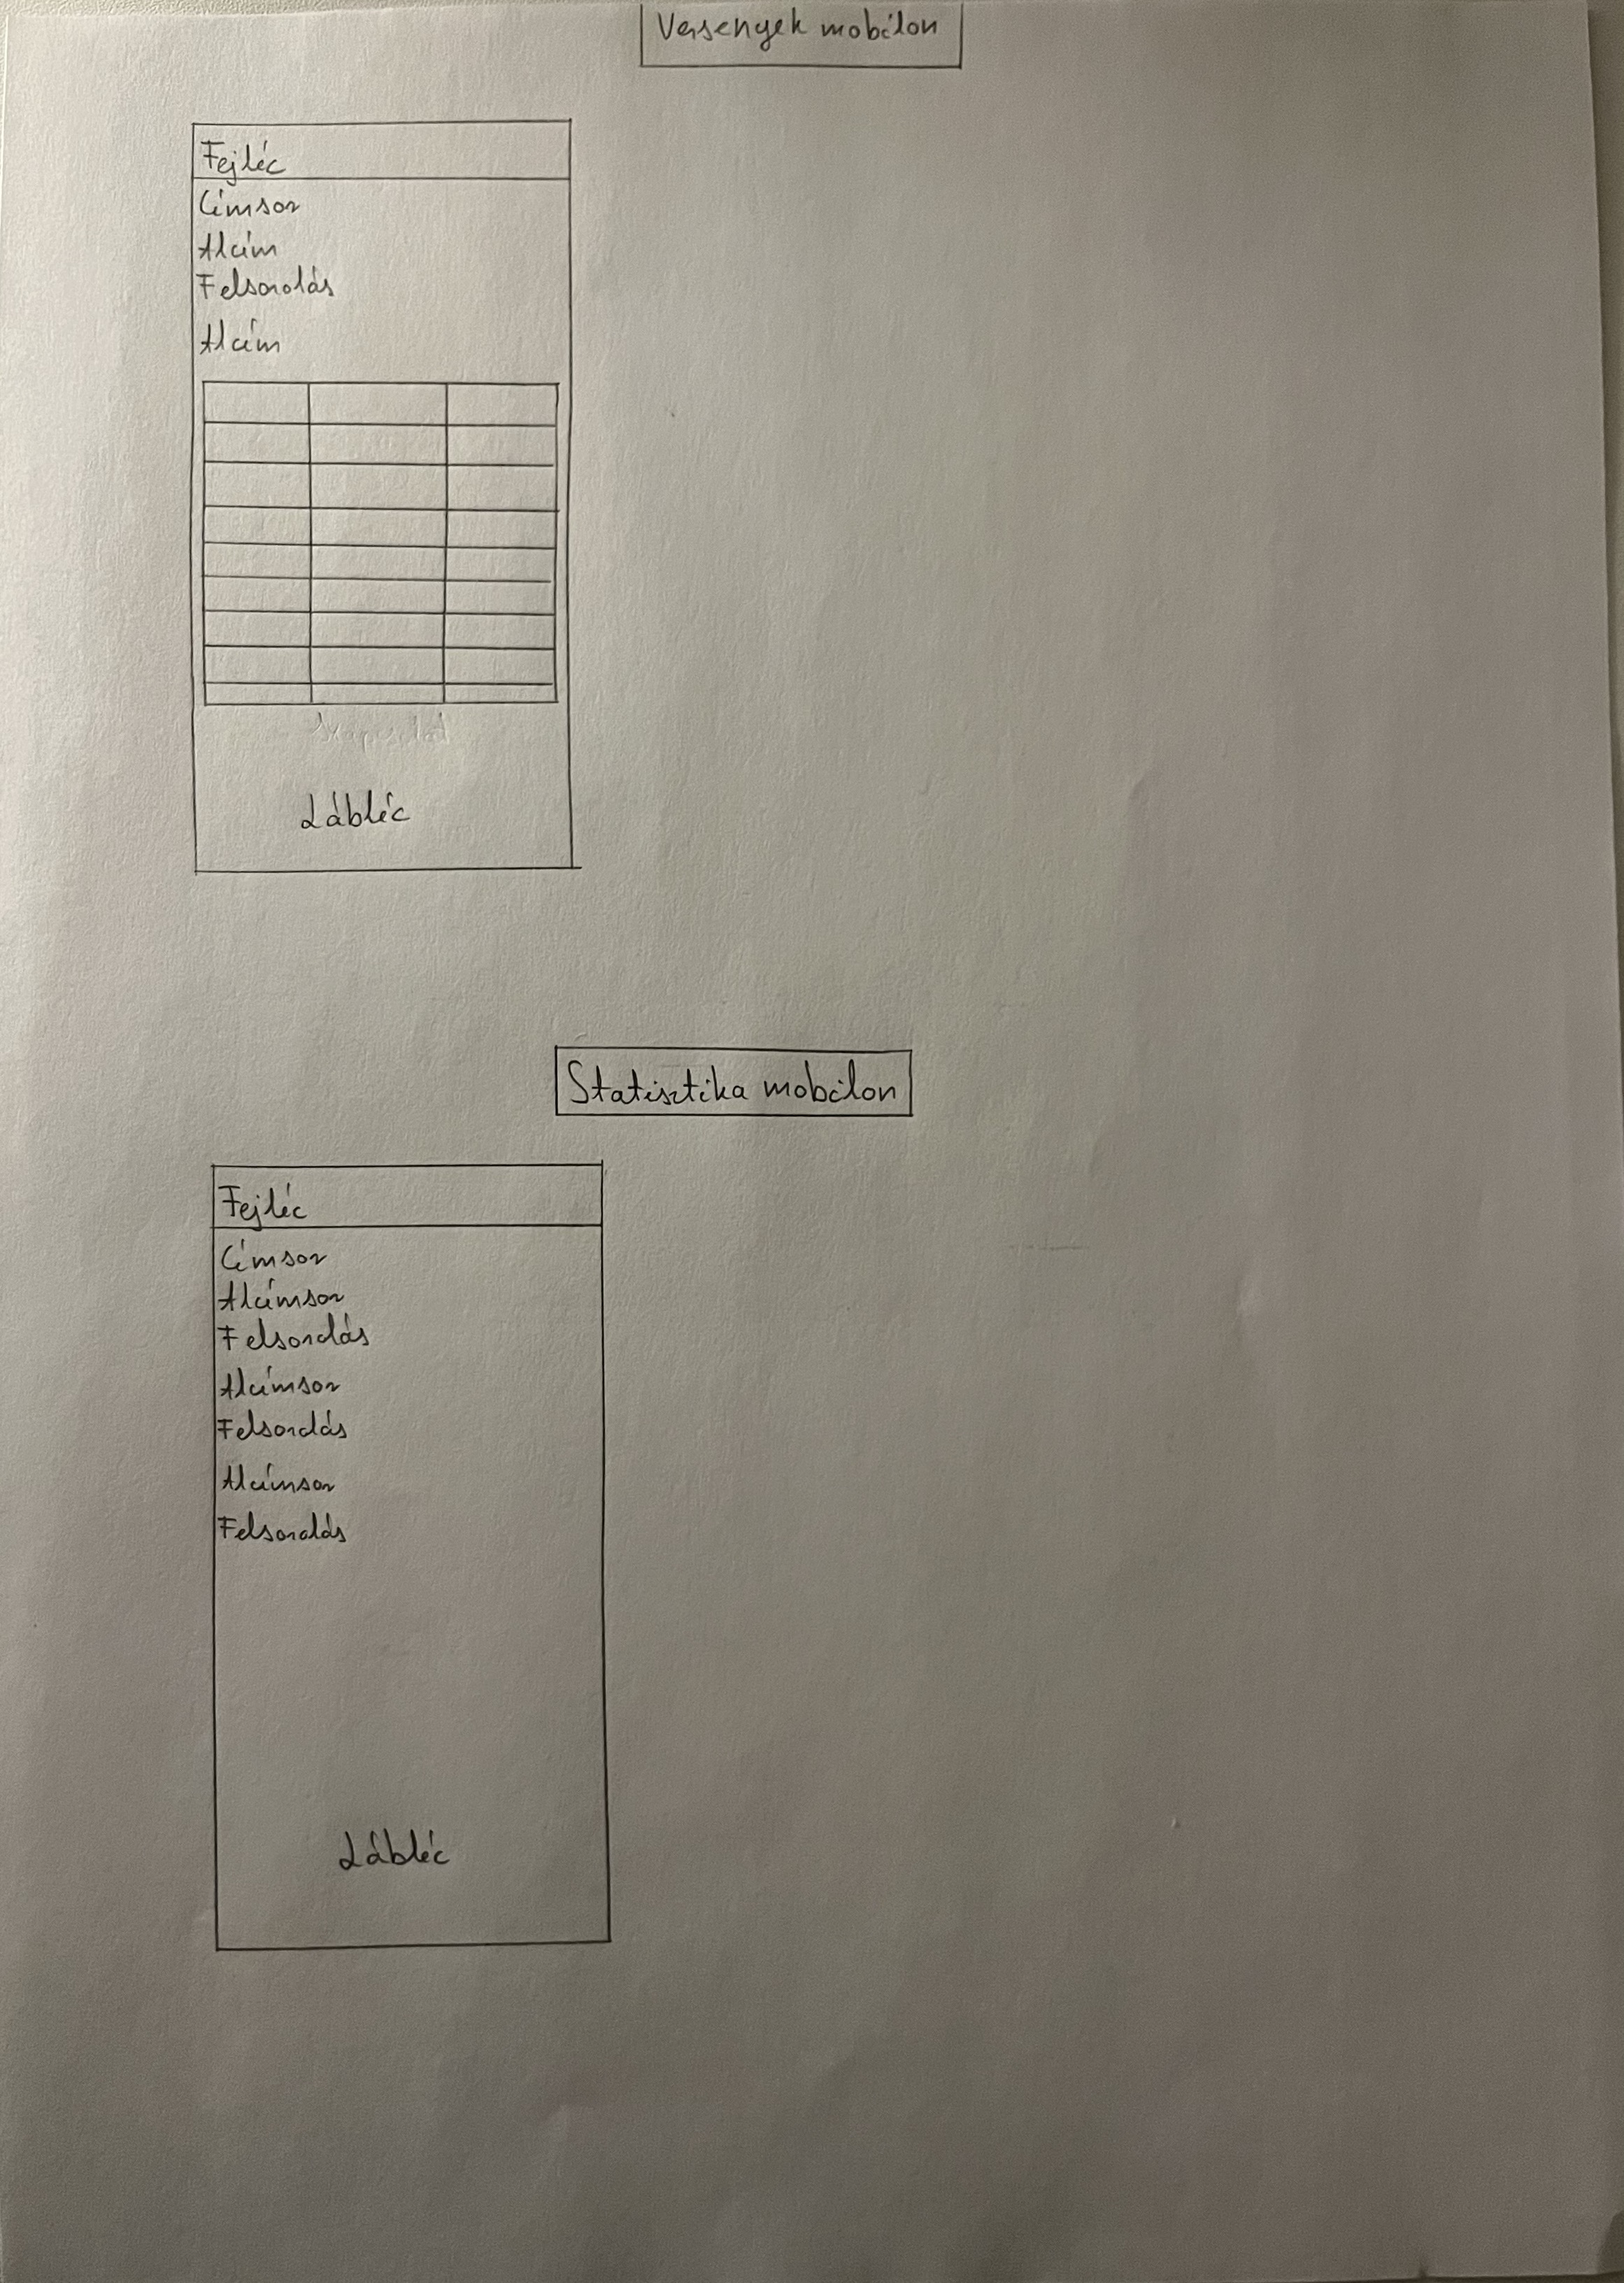 Versenyek mobilon
Fejléc
Címsor
Alcím
Felsorolás
Alcím
Lábléc
Statisztika mobilon
Fejléc
Címsor
Alcímsor
Felsorolás
Alcímsor
Felsorolás
Alcímsor
Felsorolás
Lábléc